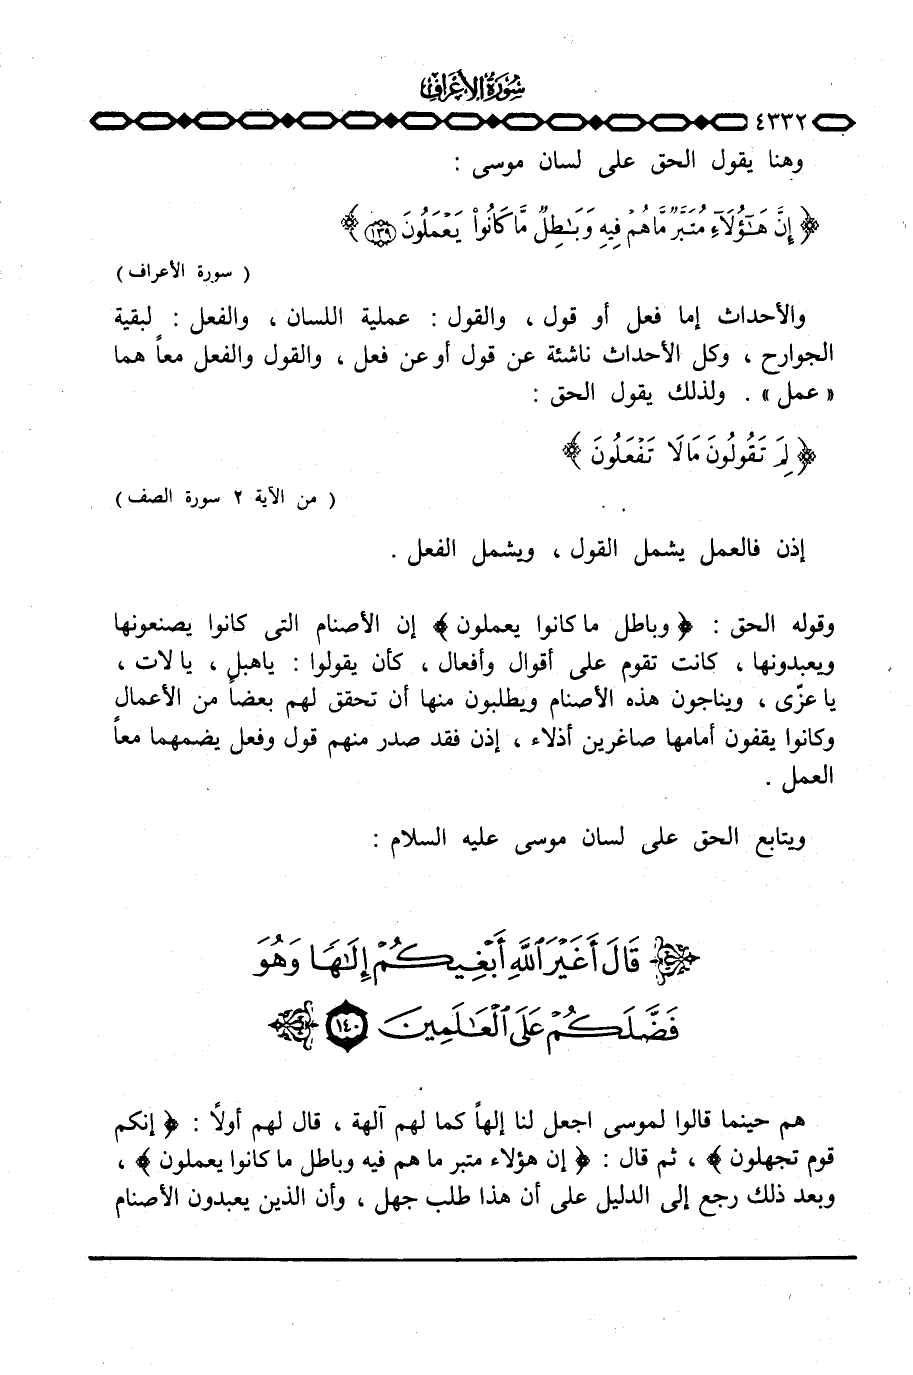 سورة الأعراف
٤٣٣٢
وهنا يقول الحق على لسان موسى :
﴿ إِنَّ هَٰٓؤُلَآءِ مُتَبَّرٌ مَّا هُمْ فِيهِ وَبَٰطِلٌ مَّا كَانُوا۟ يَعْمَلُونَ ١٣٩ ﴾
( سورة الأعراف )
والأحداث إما فعل أو قول ، والقول : عملية اللسان ، والفعل : لبقية
الجوارح ، وكل الأحداث ناشئة عن قول أو عن فعل ، والقول والفعل معاً هما
« عمل » . ولذلك يقول الحق :
﴿ لِمَ تَقُولُونَ مَا لَا تَفْعَلُونَ ﴾
( من الآية ٢ سورة الصف )
إذن فالعمل يشمل القول ، ويشمل الفعل .
وقوله الحق : ﴿ وباطل ما كانوا يعملون ﴾ إن الأصنام التى كانوا يصنعونها
ويعبدونها ، كانت تقوم على أقوال وأفعال ، كأن يقولوا : ياهبل ، يا لات ،
يا عزّى ، ويناجون هذه الأصنام ويطلبون منها أن تحقق لهم بعضاً من الأعمال
وكانوا يقفون أمامها صاغرين أذلاء ، إذن فقد صدر منهم قول وفعل يضمهما معاً
العمل .
ويتابع الحق على لسان موسى عليه السلام :
﴿ قَالَ أَغَيْرَ ٱللَّهِ أَبْغِيكُمْ إِلَٰهًا وَهُوَ
فَضَّلَكُمْ عَلَى ٱلْعَٰلَمِينَ ١٤٠ ﴾
هم حينما قالوا لموسى اجعل لنا إلهاً كما لهم آلهة ، قال لهم أولاً : ﴿ إنكم
قوم تجهلون ﴾ ، ثم قال : ﴿ إن هؤلاء متبر ما هم فيه وباطل ما كانوا يعملون ﴾ ،
وبعد ذلك رجع إلى الدليل على أن هذا طلب جهل ، وأن الذين يعبدون الأصنام